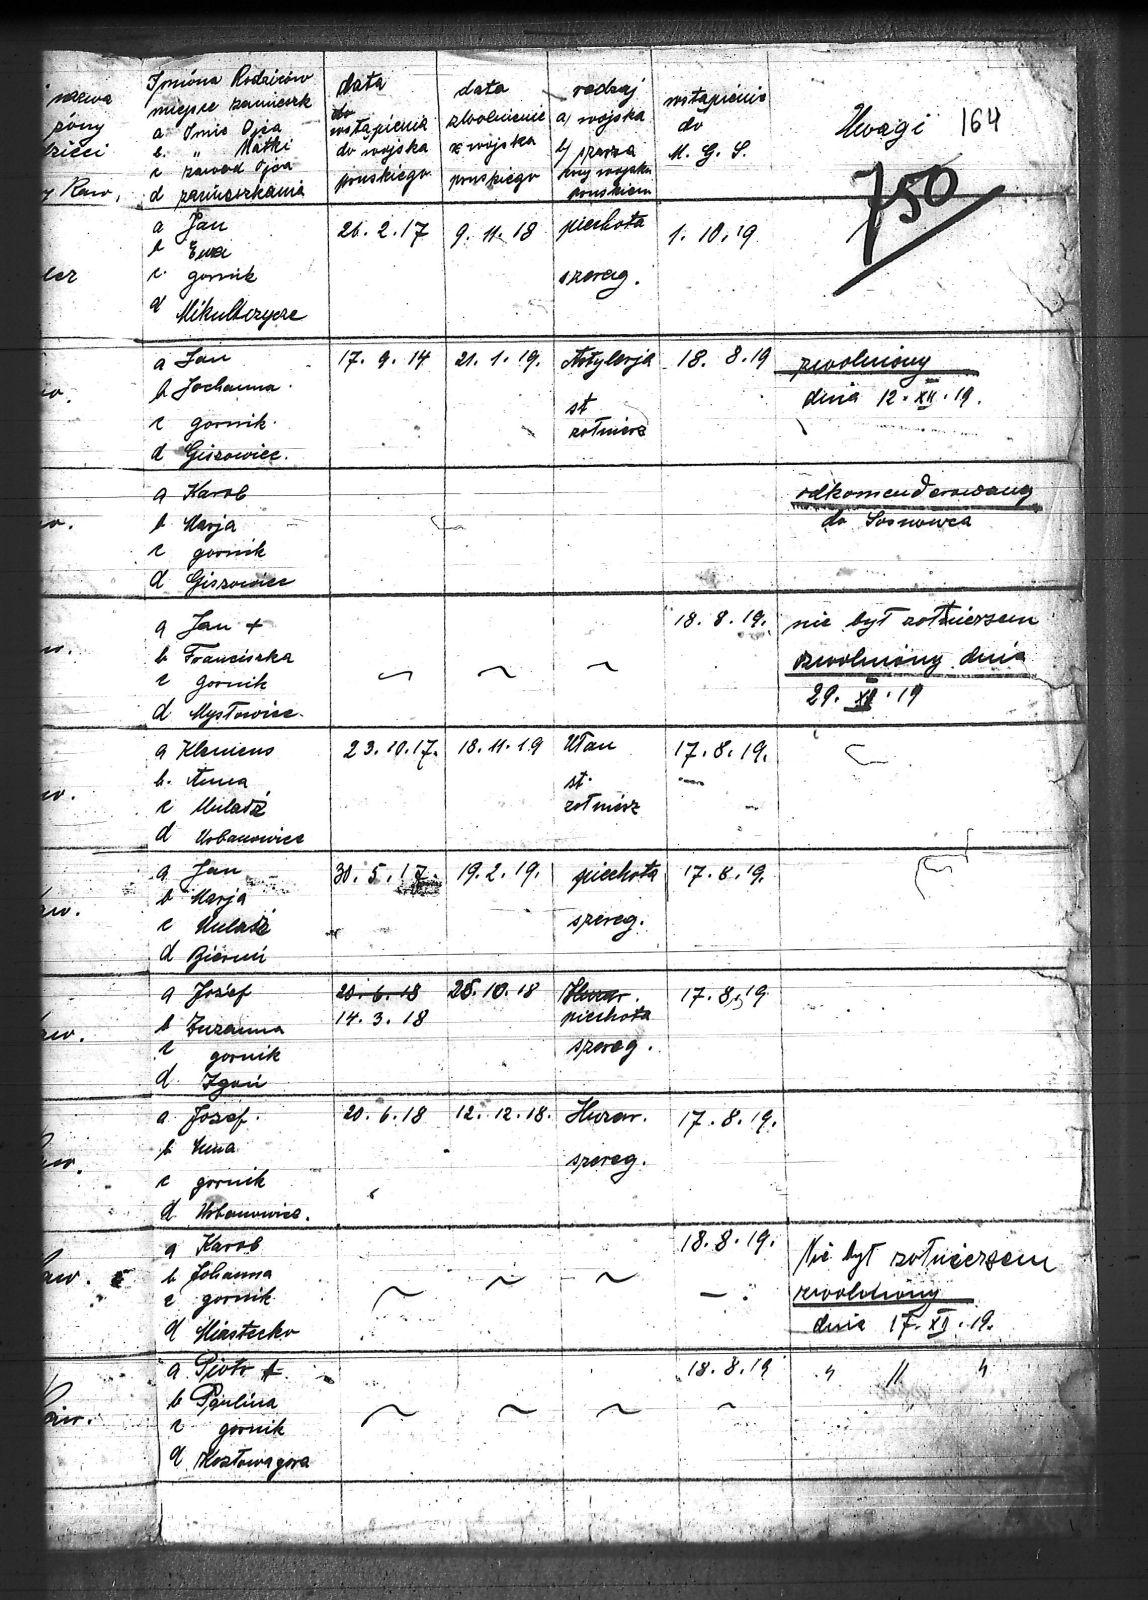 Imiona Rodziców
miejsce zamieszk
a Imie Ojca
b. " Matki
c zawód Ojca
d zamieszkania
żony
data
do
wstąpienia
do wojska
pruskiego
data
zwolnienie
z wojska
pruskiego
rodzaj
a) wojska
b) szarza
przy wojsku
pruskiem
wstąpienie
do
M. G. S.
Uwagi 164
750
a Jan 26. 2. 17 9. 11. 18 piechota 1. 10. 19
b Ewa
c gornik szereg.
d Mikulczyce
a Jan 17. 9. 14 21. 1. 19. Artylerja 18. 8. 19 zwolniony
b Jochanna dnia 12. XII. 19.
c gornik st
żołnierz
d Giszowiec.
a Karol odkomenderowany
b Marja do Sosnowca
c gornik
d Giszowiec
a Jan + 18. 8. 19. nie był żołnierzem
b Franciszka zwolniony dnia
c gornik ~ ~ ~
d Mysłowice. 29. XII. 19
a Klemens 23. 10. 17. 18. 11. 19 Ułan 17. 8. 19.
b. Anna st.
c żołnierz
d Urbanowice
a Jan 30. 5. 17. 19. 2. 19. piechota 17. 8. 19.
b Marja
c szereg.
d Bieruń
a Józef 20. 6. 18 25. 10. 18 Huzar. 17. 8. 19
14. 3. 18 piechota
b Zuzanna szereg.
c gornik
d Zgoń
a Józef. 20. 6. 18 12. 12. 18. Huzar. 17. 8. 19.
b Anna szereg.
c gornik
d Urbanowice.
a Karol 18. 8. 19. Nie był żołnierzem
b Johanna ~ ~ ~ zwolniony
c gornik
d Miastecko dnia 17. XII. 19.
a Piotr + 18. 8. 19 " " "
b Paulina ~ ~ ~ ~
c gornik
d Kozłowagora